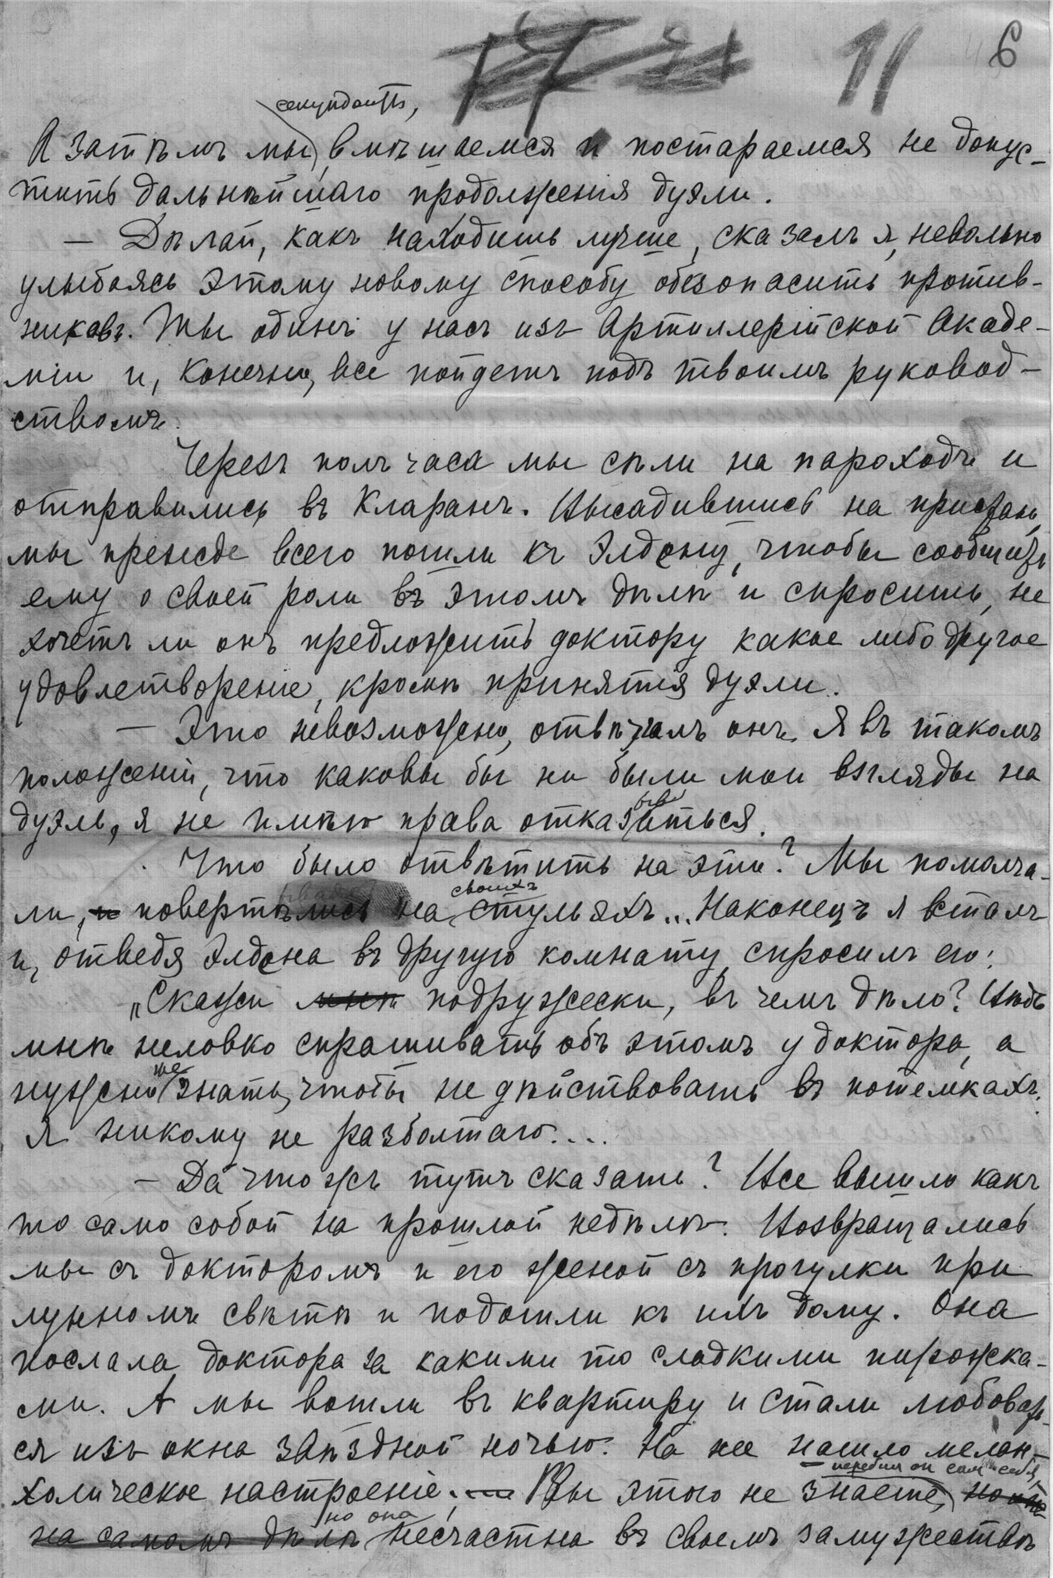 11 6
А затѣмъ мы, секунданты, вмѣшаемся и постараемся не допус-
тить дальнѣйшаго продолженія дуэли.
— Дѣлай, какъ находишь лучше, сказалъ я, невольно
улыбаясь этому новому способу обезопасить против-
никовъ. Ты одинъ у насъ изъ Артиллерійской Акаде-
міи и, конечно, все пойдетъ подъ твоимъ руковод-
ствомъ.
Черезъ полъ часа мы сѣли на пароходъ и
отправились въ Кларанъ. Высадившись на пристань,
мы прежде всего пошли къ Элдону, чтобы сообщить
ему о своей роли въ этомъ дѣлѣ и спросить, не
хочетъ ли онъ предложить доктору какое либо другое
удовлетвореніе, кромѣ принятія дуэли.
— Это невозможно, отвѣчалъ онъ. Я въ такомъ
положеніи, что каковы бы ни были мои взгляды на
дуэль, я не имѣю права отказываться.
Что было отвѣтить на это? Мы помолча-
ли, повертѣлись на своихъ стульяхъ... Наконецъ я всталъ
и, отведя Элдона въ другую комнату, спросилъ его:
„Скажи мнѣ подружески, въ чемъ дѣло? Вѣдь
мнѣ неловко спрашивать объ этомъ у доктора, а
нужно же знать, чтобы не дѣйствовать въ потемкахъ.
Я никому не разболтаю....
— Да что жъ тутъ сказать? Все вышло какъ
то само собой на прошлой недѣлѣ. Возвращались
мы съ докторомъ и его женой съ прогулки при
лунномъ свѣтѣ и подошли къ ихъ дому. Она
послала доктора за какими то сладкими пирожка-
ми. А мы вошли въ квартиру и стали любовать-
ся изъ окна звѣздной ночью. На нее нашло мелан-
холическое настроеніе. — Вы этого не знаете,
на самомъ дѣлѣ но она несчастна въ своемъ замужествѣ